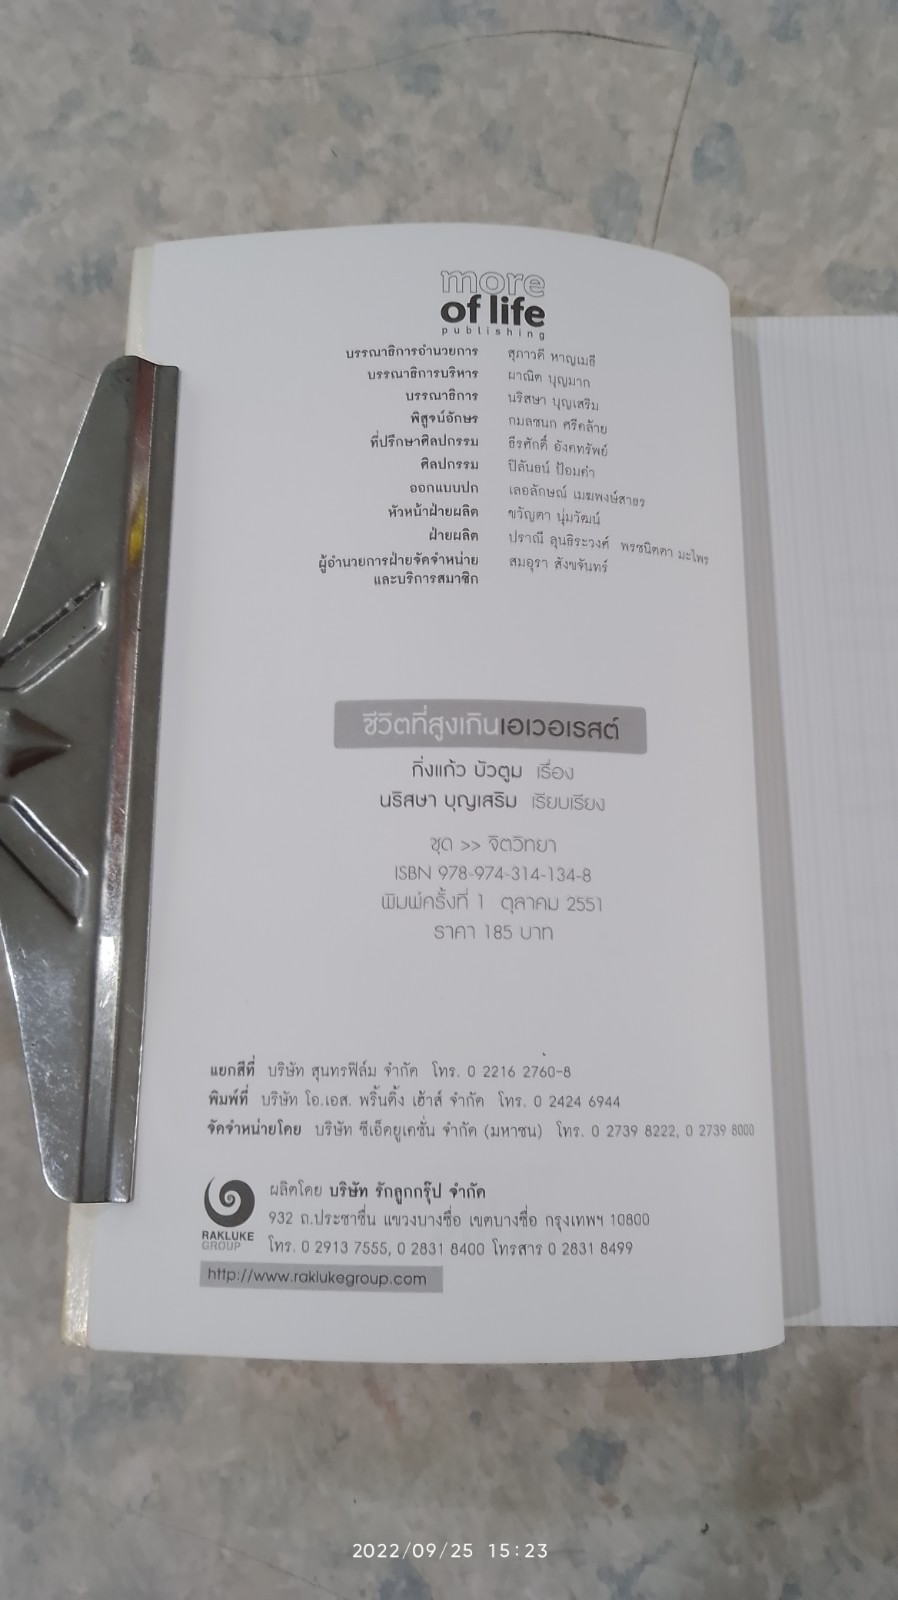 more
of life
publishing
บรรณาธิการอำนวยการ สุภาวดี หาญเมธี
บรรณาธิการบริหาร ผาณิต บุญมาก
บรรณาธิการ นริสษา บุญเสริม
พิสูจน์อักษร กมลชนก ศรีคล้าย
ที่ปรึกษาศิลปกรรม ธีรศักดิ์ อังคทรัพย์
ศิลปกรรม ปิลันธน์ ป้อมคำ
ออกแบบปก เลอลักษณ์ เมฆพงษ์สาธร
หัวหน้าฝ่ายผลิต ขวัญตา นุ่มวัฒน์
ฝ่ายผลิต ปราณี ลุนธิระวงศ์ พรชนิตตา มะไพร
ผู้อำนวยการฝ่ายจัดจำหน่าย สมอุรา สังขจันทร์
และบริการสมาชิก
ชีวิตที่สูงเกินเอเวอเรสต์
กิ่งแก้ว บัวตูม เรื่อง
นริสษา บุญเสริม เรียบเรียง
ชุด >> จิตวิทยา
ISBN 978-974-314-134-8
พิมพ์ครั้งที่ 1 ตุลาคม 2551
ราคา 185 บาท
แยกสีที่ บริษัท สุนทรฟิล์ม จำกัด โทร. 0 2216 2760-8
พิมพ์ที่ บริษัท โอ.เอส. พริ้นติ้ง เฮ้าส์ จำกัด โทร. 0 2424 6944
จัดจำหน่ายโดย บริษัท ซีเอ็ดยูเคชั่น จำกัด (มหาชน) โทร. 0 2739 8222, 0 2739 8000
ผลิตโดย บริษัท รักลูกกรุ๊ป จำกัด
932 ถ.ประชาชื่น แขวงบางซื่อ เขตบางซื่อ กรุงเทพฯ 10800
โทร. 0 2913 7555, 0 2831 8400 โทรสาร 0 2831 8499
RAKLUKE
GROUP
http://www.raklukegroup.com
2022/09/25 15:23